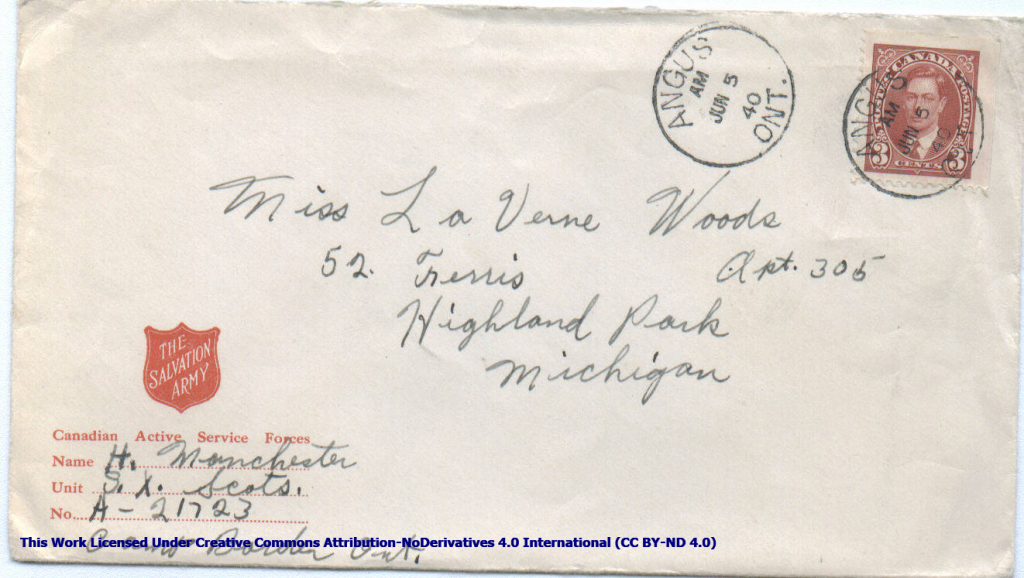 ANGUS
AM
JUN 5
40
ONT.
CANADA
POSTES POSTAGE
3 CENTS 3
ANGUS
AM
JUN 5
40
Miss La Verne Woods
52. Ferris Apt. 305
Highland Park
Michigan
THE
SALVATION
ARMY
Canadian Active Service Forces
Name H. Manchester
Unit Scots.
No. A-21723
Camp Borden Ont.
This Work Licensed Under Creative Commons Attribution-NoDerivatives 4.0 International (CC BY-ND 4.0)